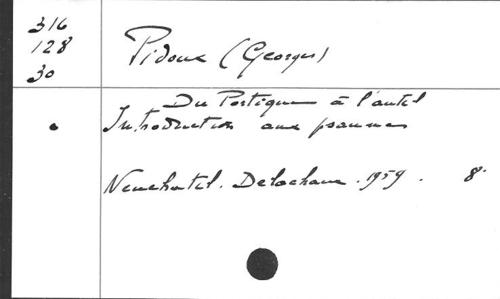 316
128
30
Pidoux (Georges)
Du Portique à l'autel
Introduction aux psaumes
Neuchatel. Delachaux. 1959. 8°